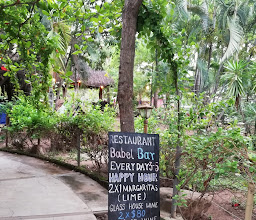 RESTAURANT
Babel Bay
EVERYDAY 5-3
HAPPY HOUR
2X1 MARGARITAS
(LIME)
GLASS HOUSE WINE
2 X $80